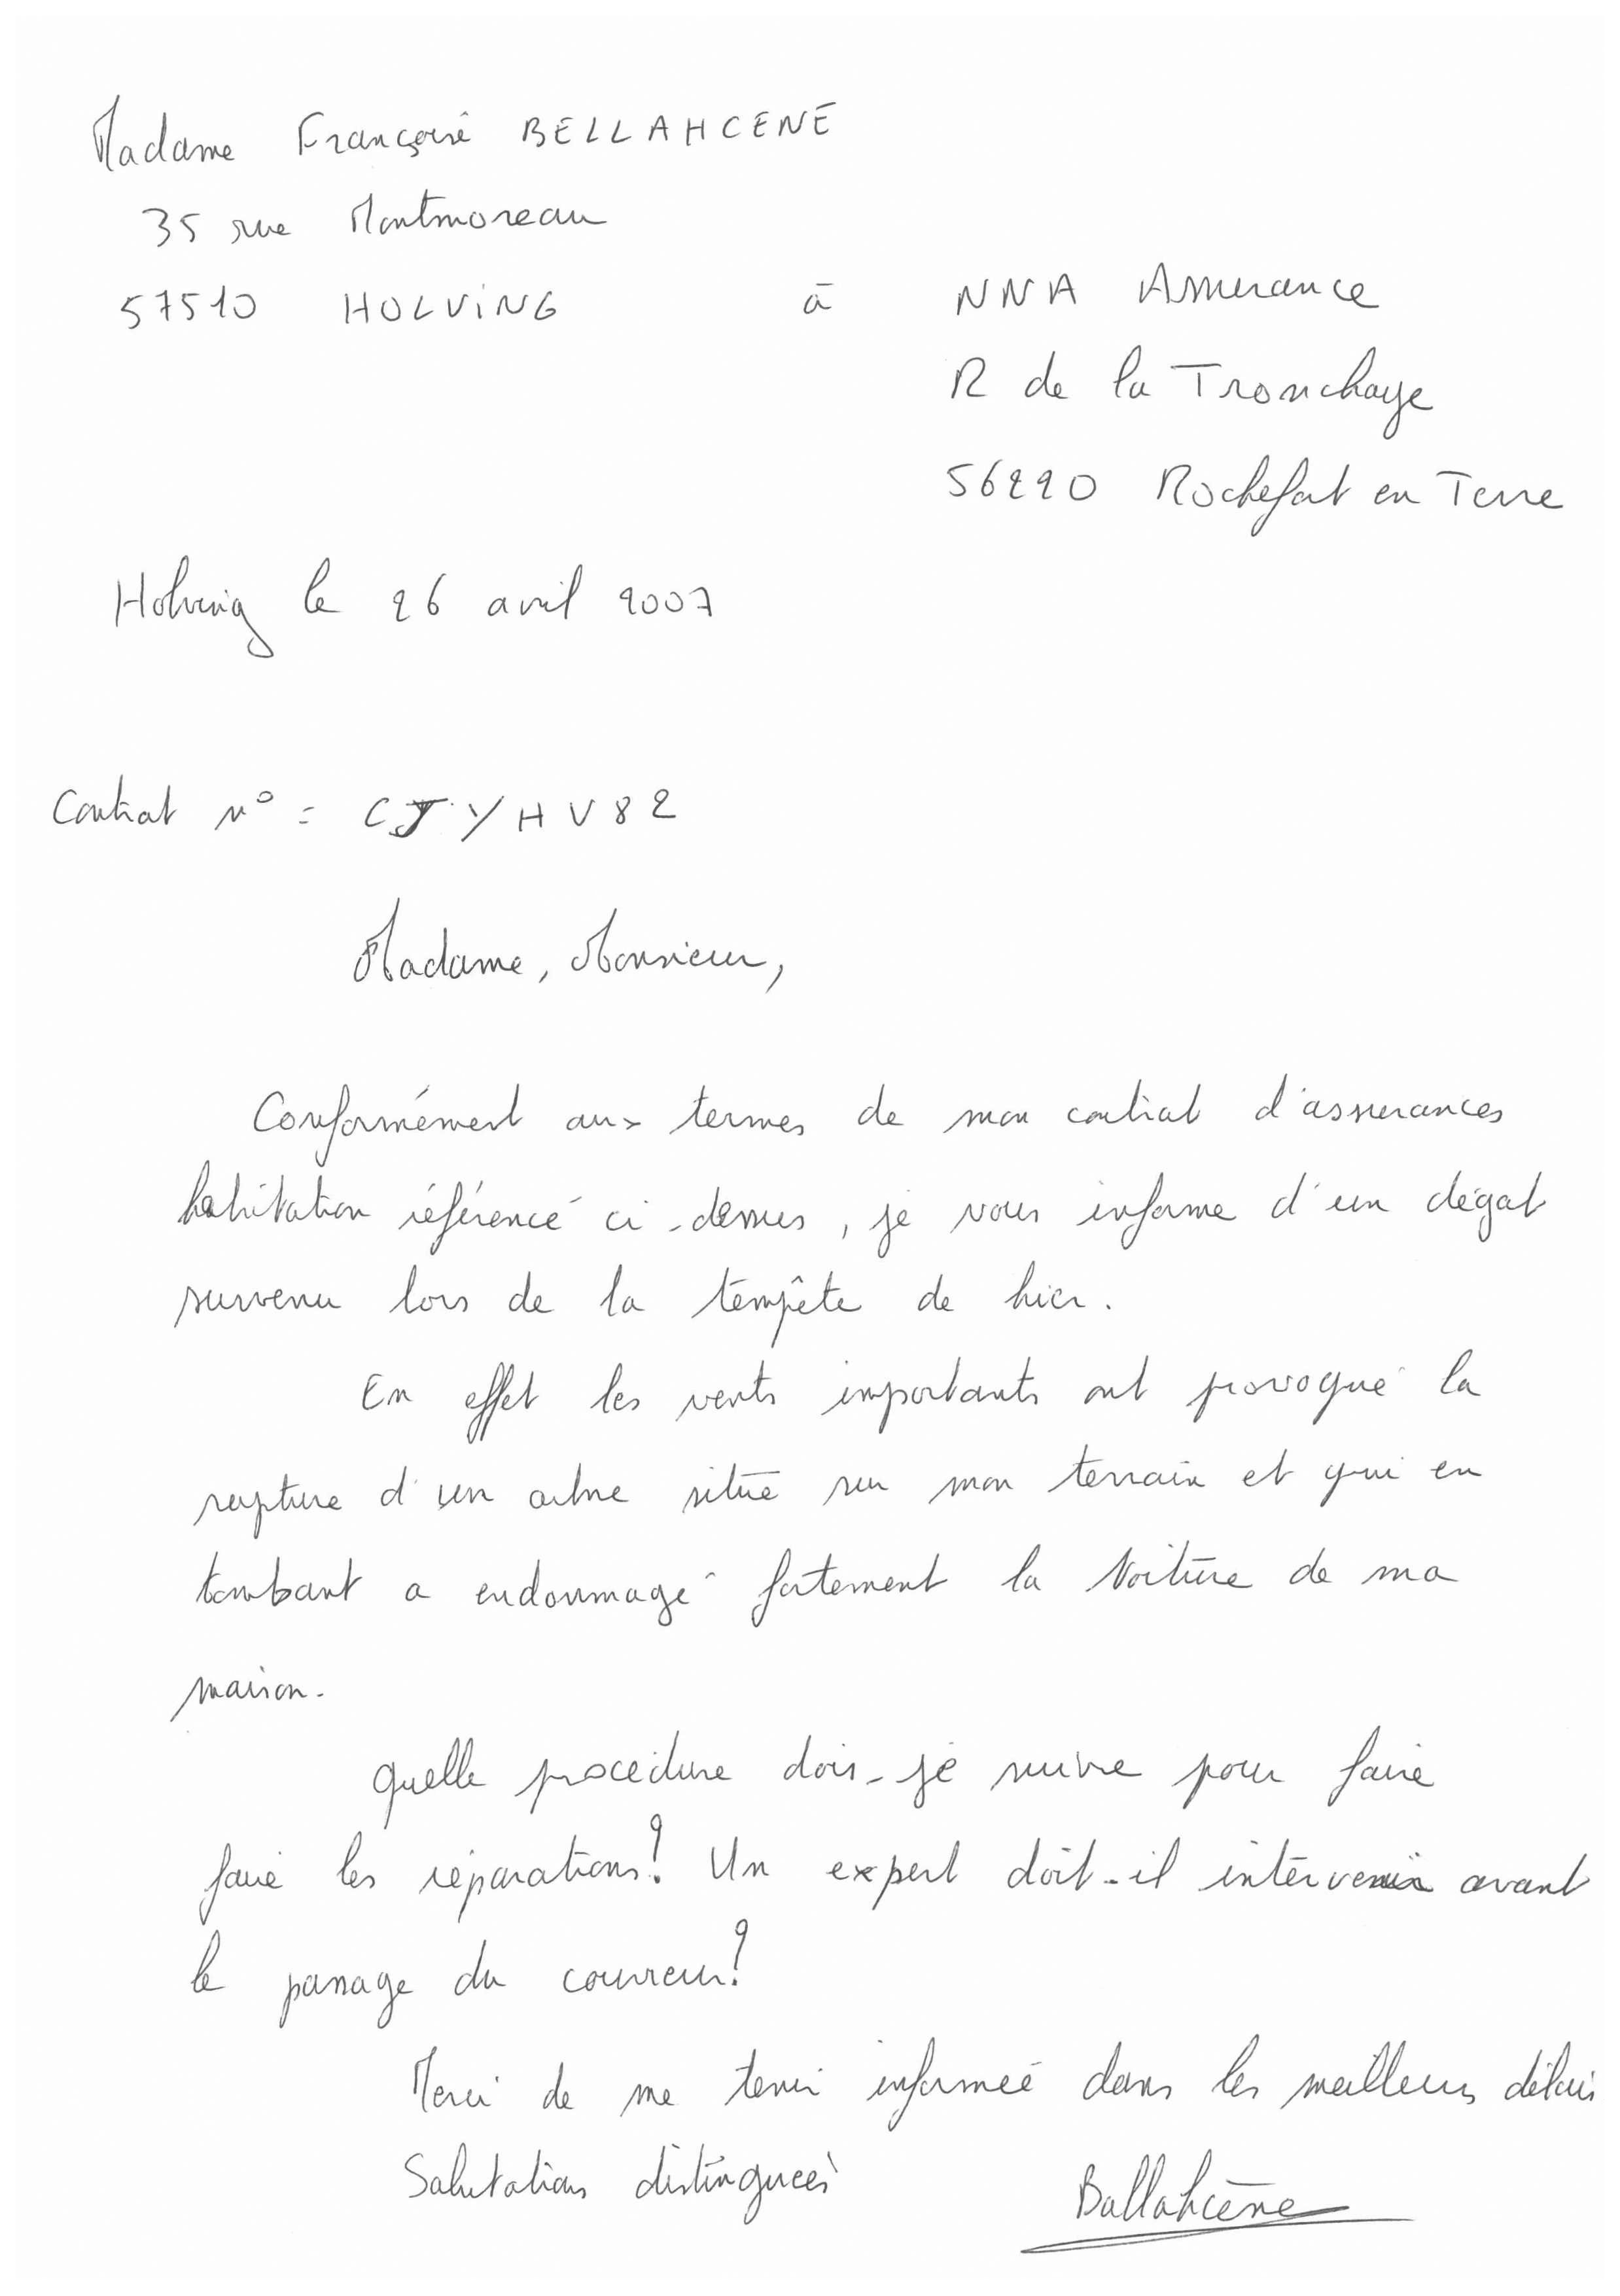 Madame Françoise BELLAHCENE
35 rue Montmoreau
57510 HOLVING
à NNA Assurance
R de la Tronchaye
56220 Rochefort en Terre
Holving le 26 avril 2007
Contrat n° : CJYHV82
Madame, Monsieur,
Conformément aux termes de mon contrat d'assurances
habitation référencé ci-dessus, je vous informe d'un dégat
survenu lors de la tempête de hier.
En effet les vents importants ont provoqué la
rupture d'un arbre situé sur mon terrain et qui en
tombant a endommagé fortement la toiture de ma
maison.
Quelle procédure dois-je suivre pour faire
faire les réparations? Un expert doit-il intervenir avant
le passage du couvreur?
Merci de me tenir informée dans les meilleurs délais
Salutations distinguées
Bellahcène